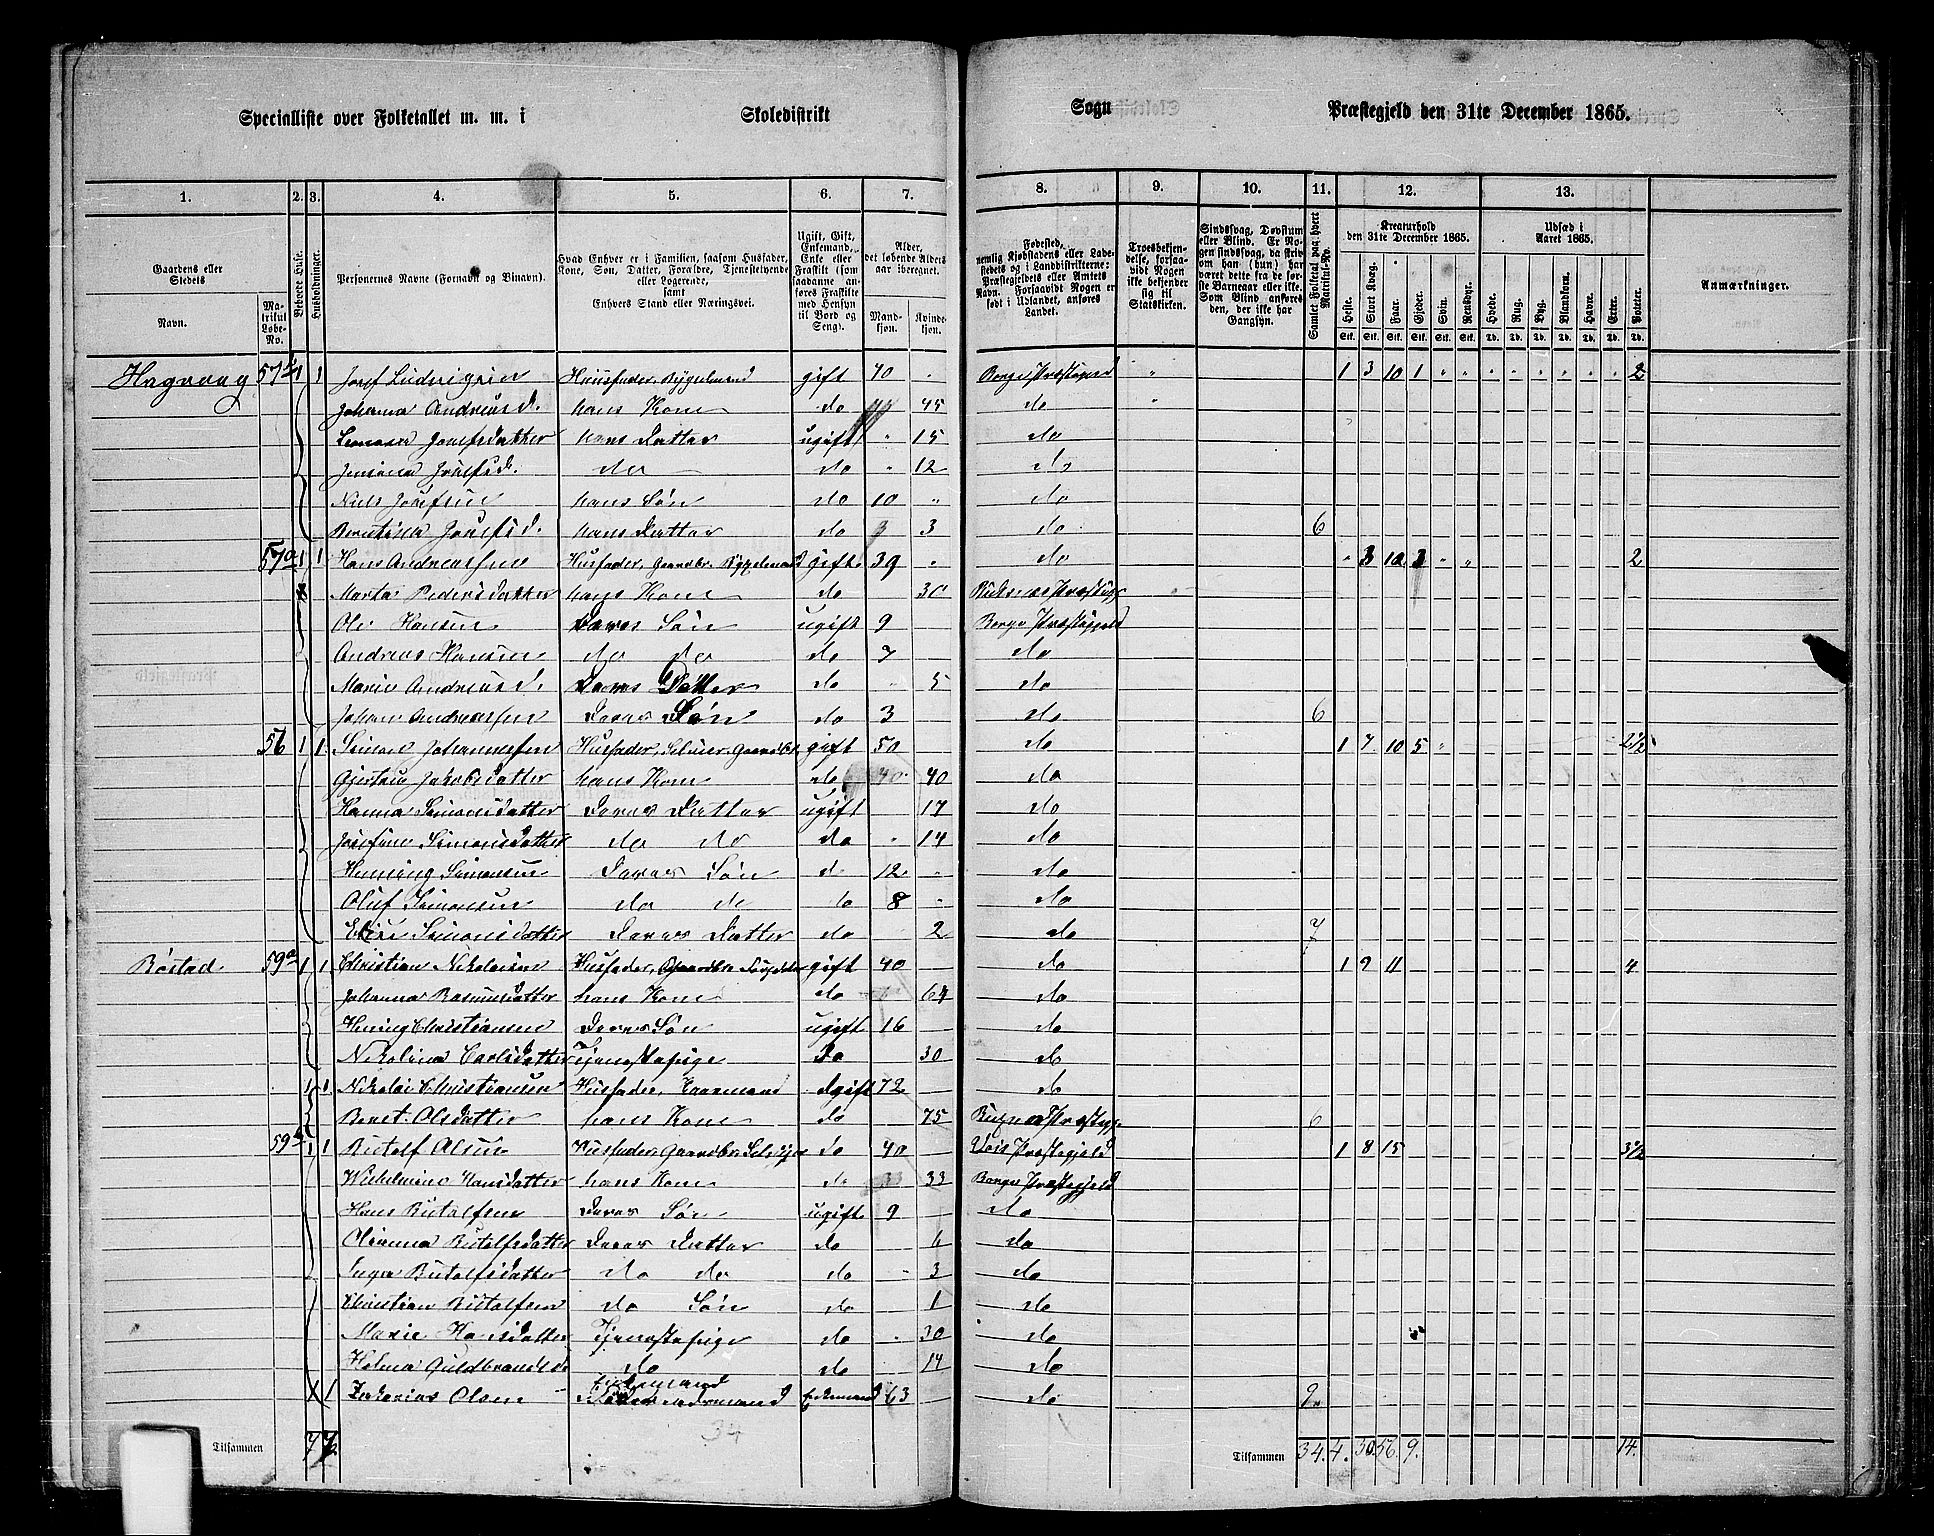 Specialliste over Folketallet m. m. i Skoledistrikt Sogn Præstegjeld den 31te December 1865.
1. 2. 3. 4. 5. 6. 7. 8. 9. 10. 11. 12. 13.
Gaardens eller Stedets Navn.
Matrikul Løbe-No.
Beboede Huse.
Husholdninger.
Personernes Navne (Fornavn og Binavn).
Hvad Enhver er i Familien, saasom Husfader, Kone, Søn, Datter, Forældre, Tjenestetyende eller Logerende, samt Enhvers Stand eller Næringsvei.
Ugift, Gift, Enkemand, Enke eller Fraskilt (som saadanne anføres Fraskilte med Hensyn til Bord og Seng).
Alder, det løbende Alders aar iberegnet.
Mandkjøn. Kvindekjøn.
Fødested, nemlig Kjøbstadens eller Ladestedets og i Landdistrikterne: Præstegjeldets eller Amtets Navn. Forsaavidt Nogen er født i Udlandet, anføres Landet.
Troesbekjendelse, forsaavidt Nogen ikke bekjender sig til Statskirken.
Sindssvag, Døvstum eller Blind. Er Nogen sindssvag, da skrives om han (hun) har været dette fra de første Barneaar eller ikke. Som Blind anføres den, der ikke har Gangsyn.
Samlet Folketal paa hvert Matrikul-No.
Kreaturhold den 31te December 1865.
Heste. Stort Kvæg. Faar. Gjeder. Svin. Rensdyr.
Udsæd i Aaret 1865.
Hvede. Rug. Byg. Blandkorn. Havre. Erter. Poteter.
Stk. Stk. Stk. Stk. Stk. Stk. Td. Td. Td. Td. Td. Td. Td.
Anmærkninger.
Hagvaag 57b 1 1 Josef Ludvigsen Husfader, gift 40 " Borge Præstegjeld " 1 3 10 1 " " " " " " " " 2
Johanna Andreasd. hans Kone do 45 do "
Josefsdatter hans Datter ugift " 15 do
Jensine Josefsd. do do " 12 do
Niels Josefsen hans Søn do 10 " do
Josefsd. hans Datter do 3 do 6
57a 1 1 Hans Andreassen Husfader, Gaardbr. gift 39 " do " 3 10 3 " " 2
Marta Pedersdatter hans Kone do 30 "
Ole Hansen Deres Søn ugift 9 Borge Præstegjeld
Andreas Hansen do do do 7 do
Marie Andreasd. Deres Datter do " 5 do
Johan Andreassen Deres Søn do 3 do 6
56 1 1 Simon Johannessen Husfader, Selveier, Gaardbr gift 50 do 1 7 10 5 " 2 1/2
Jakobsdatter hans Kone do 40 do
Hanna Simonsdatter Deres Datter ugift 17 do
Josefine Simonsdatter do do do " 14 do
Henning Simonsen Deres Søn do 12 " do
Oluf Simonsen do do do 8 " do
Simonsdatter Deres Datter do 2 do 7
Bøstad 59a 1 1 Christian Nikolaisen Husfader, Gaardbr gift 40 do 1 9 11 4
Johanna Rasmusdatter hans Kone do 64 do
Hening Christiansen Deres Søn ugift 16 do
Nikolina Carlsdatter Tjenestepige do 30 do
1 1 Nikolai Christiansen Husfader, Kaarmand gift 72 do
Beret Olsdatter hans Kone do 75 6
59b 1 1 Rutolf Olsen Husfader, Gaardbr. Selveier do 40 Præstegjeld 1 8 15 3 1/2
Wilhelmine Hansdatter hans Kone do 33 Borge Præstegjeld
Hans Rutolfsen Deres Søn ugift 9 do
Oleanna Rutolfsdatter Deres Datter do 6 do
Inger Rutolfsdatter do do do 3 do
Christian Rutolfsen do Søn do 1 do
Marie Hansdatter Tjenestepige do " 30 do
Helma Guldbrandsd do do 14 do
1 1 Zakarias Olsen Enkemand Enkemand 63 do 9
34
Tilsammen 7 7 Tilsammen 34. 4. 30 56. 9. 14.